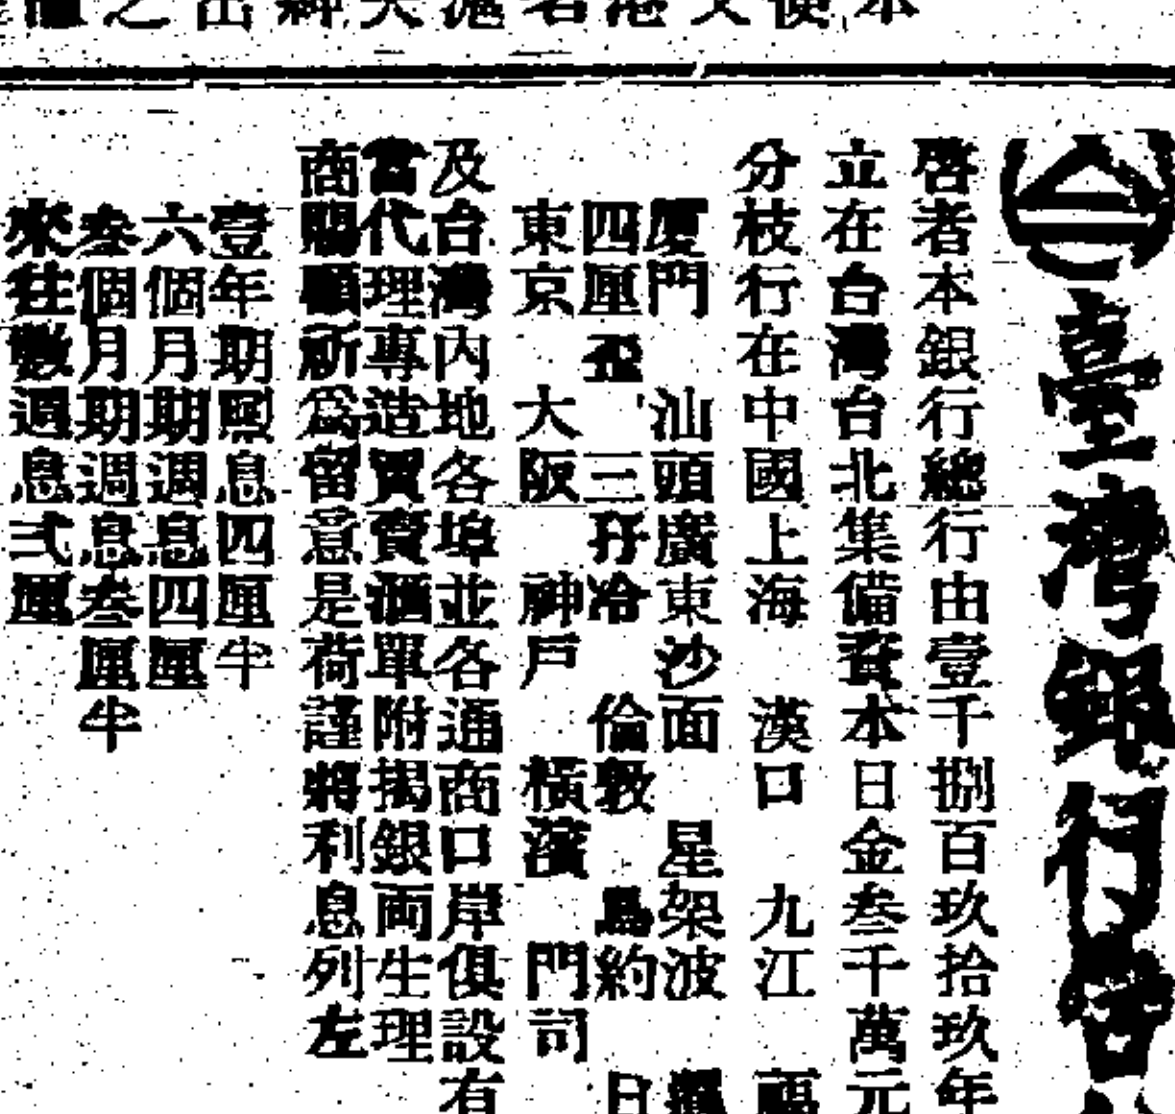 臺灣銀行告
啓者本銀行總行由壹千捌百玖拾玖年
立在台灣台北集備資本日金叁千萬元
分枝行在中國上海 漢口 九江 福
廈門 汕頭廣東沙面 星架波
四厘歪 三孖冷 倫敦 鳥約 日
東京 大阪 神戶 橫濱 門司
及台灣內地各埠並各通商口岸俱設有
代理專造買賣滙單附揭銀両生理
商賜顧祈為留意是荷謹將利息列左
壹年期照息四厘半
六個月期週息四厘
叁個月期週息叁厘半
來往數週息弍厘